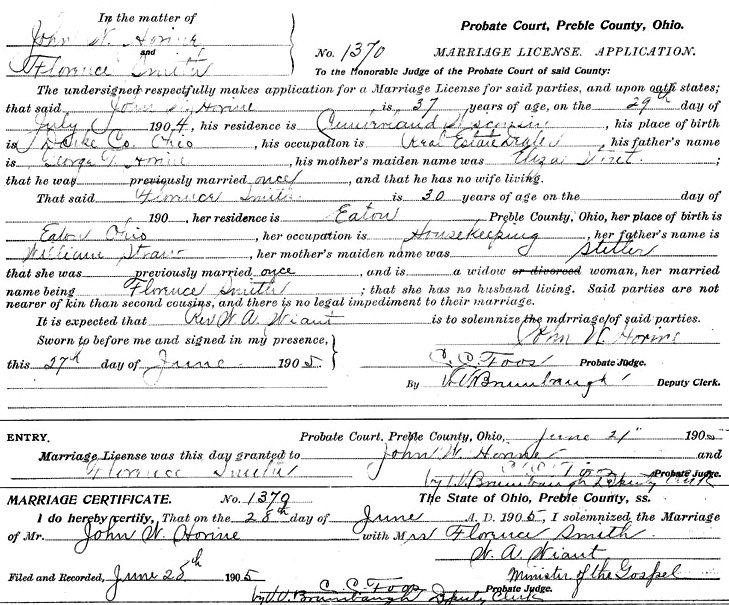 In the matter of
John W. Horine
and
Florence Smith
Probate Court, Preble County, Ohio.
No. 1370 MARRIAGE LICENSE. APPLICATION.
To the Honorable Judge of the Probate Court of said County:
The undersigned respectfully makes application for a Marriage License for said parties, and upon oath states;
that said John W. Horine is 37 years of age, on the 29th day of
July 1904, his residence is Wisconsin, his place of birth
is Darke Co. Ohio, his occupation is Real Estate dealer, his father's name
is George Horine, his mother's maiden name was ;
that he was previously married once, and that he has no wife living.
That said Florence Smith is 30 years of age on the day of
190 , her residence is Eaton Preble County, Ohio, her place of birth is
Eaton Ohio, her occupation is Housekeeping, her father's name is
William Straw, her mother's maiden name was
that she was previously married once, and is a widow or divorced woman, her married
name being Florence Smith; that she has no husband living. Said parties are not
nearer of kin than second cousins, and there is no legal impediment to their marriage.
It is expected that Rev. W. A. Wiant is to solemnize the marriage of said parties.
Sworn to before me and signed in my presence, John W. Horine
this 27th day of June 1905. C. C. Foos Probate Judge.
By W. Brumbaugh Deputy Clerk.
ENTRY. Probate Court, Preble County, Ohio, June 1905
Marriage License was this day granted to John W. Horine and
Florence Smith C. C. Foos Probate Judge.
by Brumbaugh Deputy Clerk
MARRIAGE CERTIFICATE. No. 1379 The State of Ohio, Preble County, ss.
I do hereby certify, That on the 28th day of June A. D. 1905, I solemnized the Marriage
of Mr. John W. Horine with Mrs Florence Smith
W. A. Wiant
Minister of the Gospel
Filed and Recorded, June 28th 1905 C. C. Foos Probate Judge.
by Brumbaugh Deputy Clerk